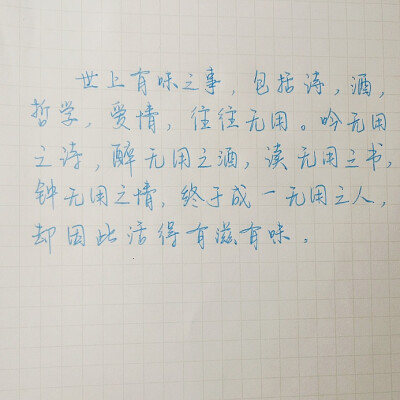 世上有味之事，包括诗，酒，
哲学，爱情，往往无用。吟无用
之诗，醉无用之酒，读无用之书，
钟无用之情，终于成一无用之人，
却因此活得有滋有味。